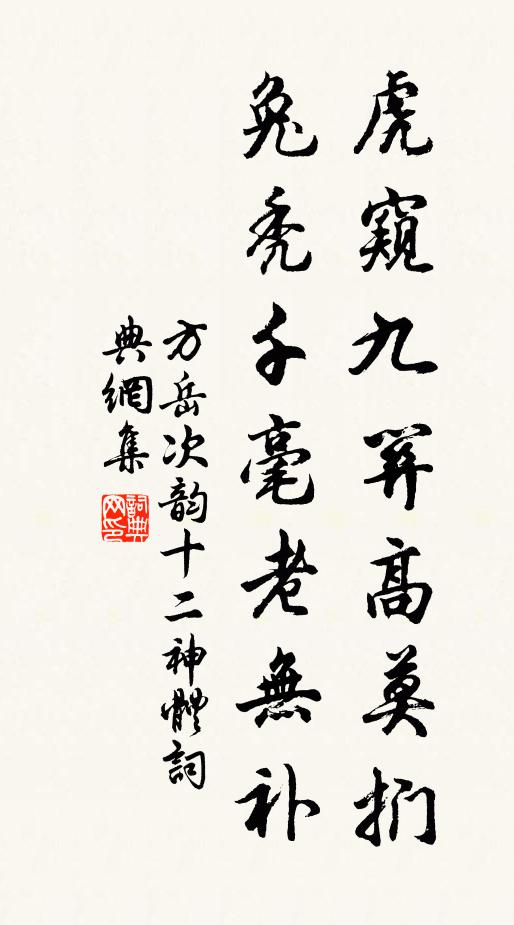 虎窺九關高莫捫
兔禿千毫老無补
方岳次韵十二神體詞
典網集
詞典
网印